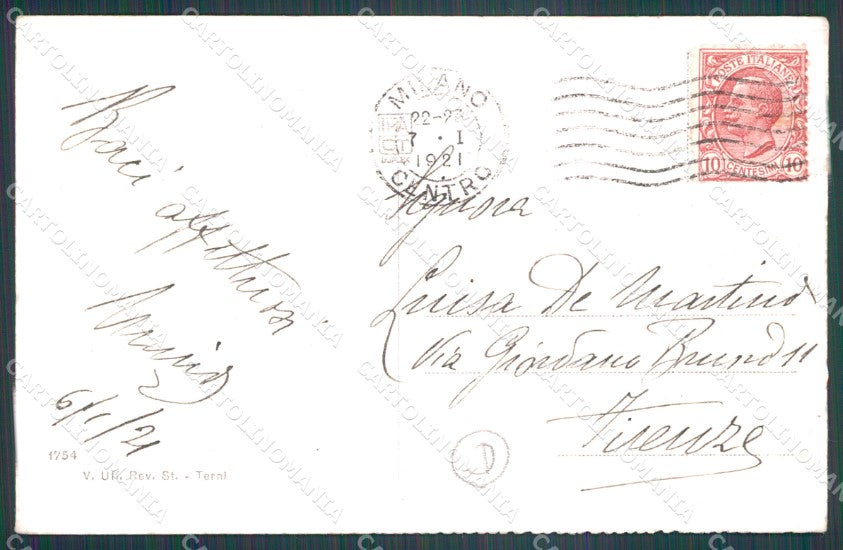 Baci
affettuosi
6/1/21
1754
V. Uff. Rev. St. - Terni
MILANO
22-23
7 . I
1921
CENTRO
POSTE ITALIANE
10 CENTESIMI 10
Signora
Luisa De Martino
Via Giordano Bruno 11
Firenze
D
CARTOLINOMANIA